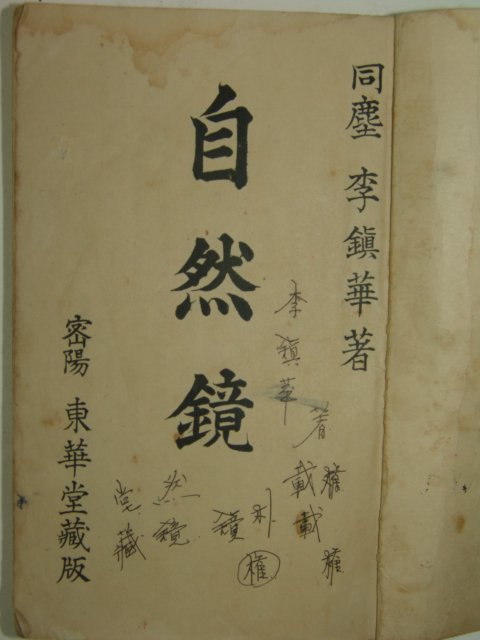 同塵 李鎭華著
自然鏡
密陽 東華堂藏版
李鎭華著
載
載
朴
鏡
權
然鏡
堂藏